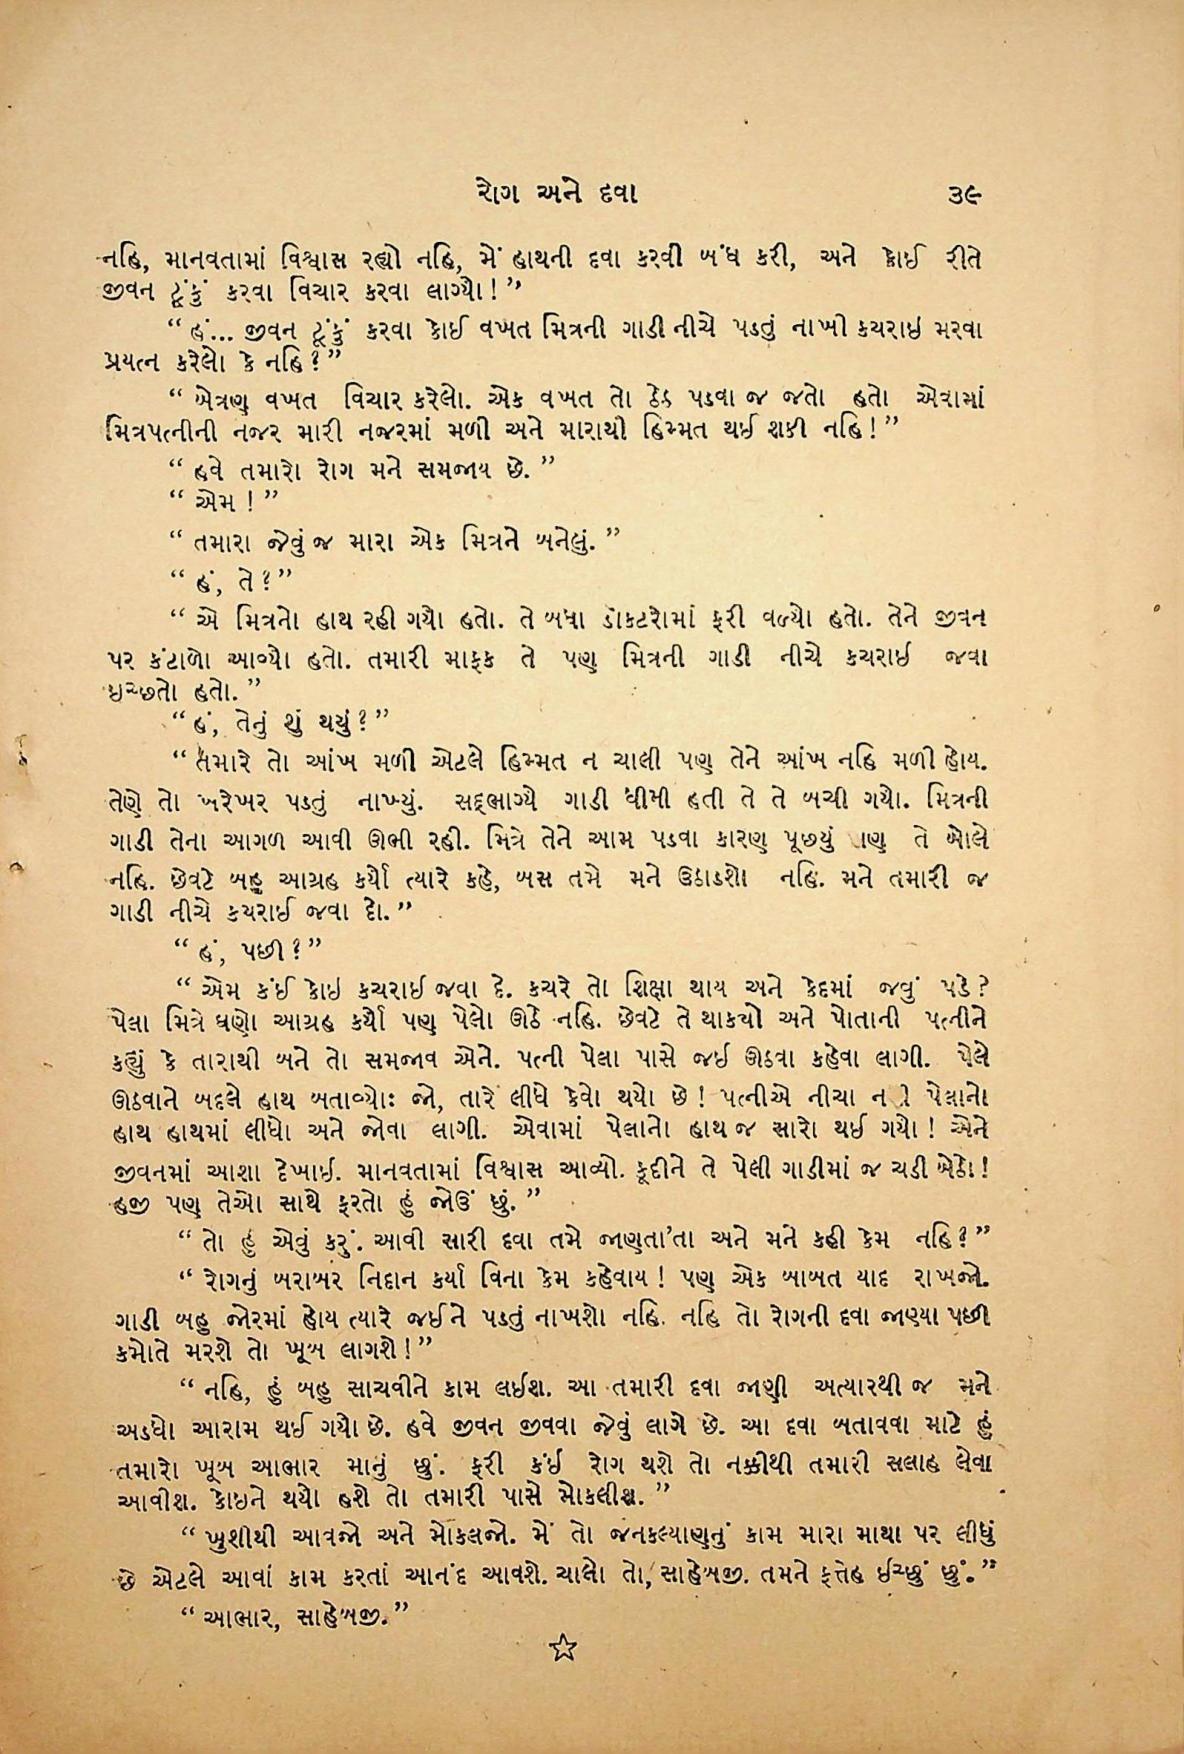 રોગ અને દવા ૩૯
નહિ, માનવતામાં વિશ્વાસ રહ્યો નહિ, મેં હાથની દવા કરવી બંધ કરી, અને કોઈ રીતે
જીવન ટૂંકું કરવા વિચાર કરવા લાગ્યો!”
“હં... જીવન ટૂંકું કરવા કોઈ વખત મિત્રની ગાડી નીચે પડતું નાખી કચરાઇ મરવા
પ્રયત્ન કરેલો કે નહિ?”
“બેત્રણ વખત વિચાર કરેલો. એક વખત તો ઠેઠ પડવા જ જતો હતો એવામાં
મિત્રપત્નીની નજર મારી નજરમાં મળી અને મારાથી હિમ્મત થઈ શકી નહિ!”
“હવે તમારો રોગ મને સમજાય છે.”
“એમ!”
“તમારા જેવું જ મારા એક મિત્રને બનેલું.”
“હં, તે?”
“એ મિત્રનો હાથ રહી ગયો હતો. તે બધા ડૉકટરોમાં ફરી વળ્યો હતો. તેને જીવન
પર કંટાળો આવ્યો હતો. તમારી માફક તે પણ મિત્રની ગાડી નીચે કચરાઇ જવા
ઇચ્છતો હતો.”
“હં, તેનું શું થયું?”
“તમારે તો આંખ મળી એટલે હિમ્મત ન ચાલી પણ તેને આંખ નહિ મળી હોય.
તેણે તો ખરેખર પડતું નાખ્યું. સદ્દભાગ્યે ગાડી ધીમી હતી તે તે બચી ગયો. મિત્રની
ગાડી તેના આગળ આવી ઊભી રહી. મિત્રે તેને આમ પડવા કારણ પૂછ્યું પણ તે બોલે
નહિ. છેવટે બહુ આગ્રહ કર્યો ત્યારે કહે, બસ તમે મને ઉઠાડશો નહિ. મને તમારી જ
ગાડી નીચે કચરાઈ જવા દો.”
“હં, પછી?”
“એમ કંઈ કોઇ કચરાઇ જવા દે. કચરે તો શિક્ષા થાય અને કેદમાં જવું પડે?
પેલા મિત્રે ઘણો આગ્રહ કર્યો પણ પેલો ઊઠે નહિ. છેવટે તે થાકયો અને પોતાની પત્નીને
કહ્યું કે તારાથી બને તો સમજાવ એને. પત્ની પેલા પાસે જઇ ઊઠવા કહેવા લાગી. પેલે
ઊઠવાને બદલે હાથ બતાવ્યોઃ જો, તારે લીધે કેવો થયો છે! પત્નીએ નીચા પેલાનો
હાથ હાથમાં લીધો અને જોવા લાગી. એવામાં પેલાનો હાથ જ સારો થઈ ગયો! એને
જીવનમાં આશા દેખાઈ. માનવતામાં વિશ્વાસ આવ્યો. કૂદીને તે પેલી ગાડીમાં જ ચડી બેઠો!
હજી પણ તેઓ સાથે ફરતો હું જોઉં છું.”
“તો હું એવું કરું. આવી સારી દવા તમે જાણતા’તા અને મને કહી કેમ નહિ?”
“રોગનું બરાબર નિદાન કર્યા વિના કેમ કહેવાય! પણ એક બાબત યાદ રાખજો.
ગાડી બહુ જોરમાં હોય ત્યારે જઈને પડતું નાખશો નહિ. નહિ તો રોગની દવા જાણ્યા પછી
કમોતે મરશે તો ખૂબ લાગશે!”
“નહિ, હું બહુ સાચવીને કામ લઈશ. આ તમારી દવા જાણી અત્યારથી જ મને
અડધો આરામ થઈ ગયો છે. હવે જીવન જીવવા જેવું લાગે છે. આ દવા બતાવવા માટે હું
તમારો ખૂબ આભાર માનું છું. ફરી કંઇ રોગ થશે તો નક્કીથી તમારી સલાહ લેવા
આવીશ. કોઇને થયો હશે તો તમારી પાસે મોકલીશ.”
“ખુશીથી આવજો અને મોકલજો. મેં તો જનકલ્યાણનું કામ મારા માથા પર લીધું
છે એટલે આવાં કામ કરતાં આનંદ આવશે. ચાલો તો, સાહેબજી. તમને ફત્તેહ ઈચ્છું છું.”
“આભાર, સાહેબજી.”